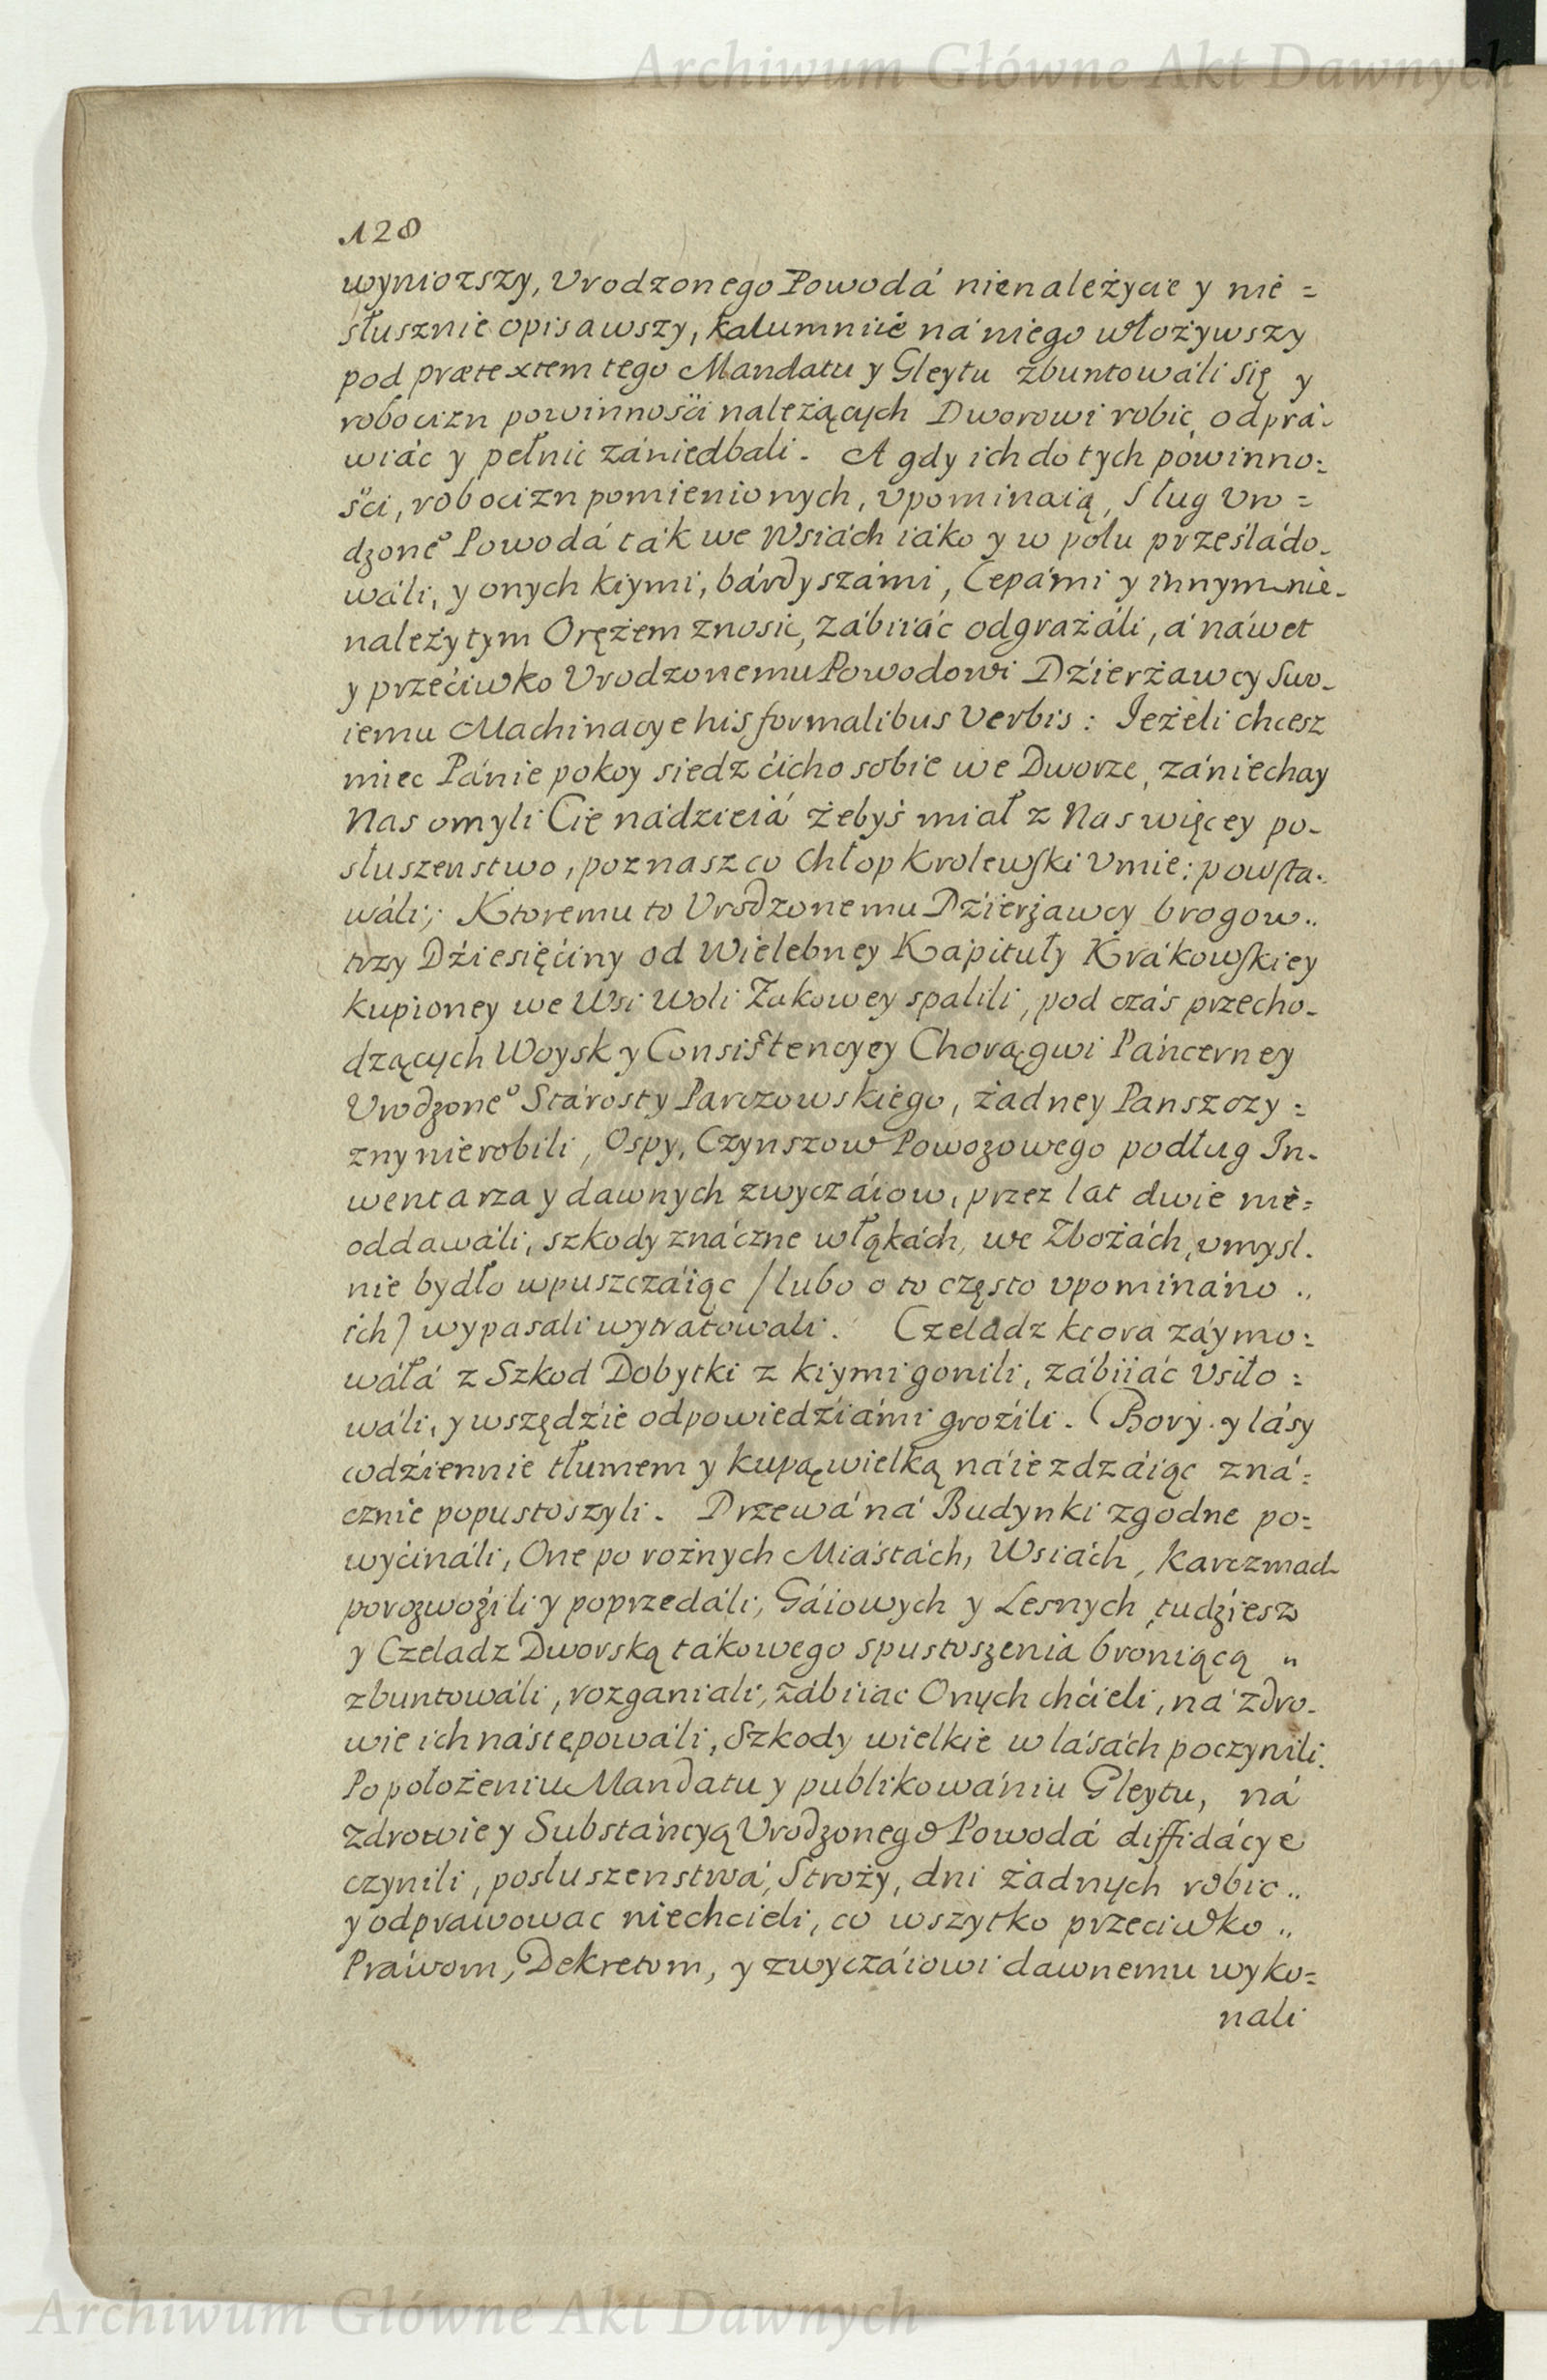 Archiwum Główne Akt Dawnych
128
wyniozszy, Vrodzonego Powodá nienależycie y nie =
słusznie opisawszy, kalumniie ná niego włożywszy
pod prætextem tego Mandatu y Gleytu zbuntowáli się y
robocizn powinnośći należących Dworowi robic, odprá-
wiác y pełnic zániedbali. A gdy ich do tych powinno=
śći, robocizn pomienionych, vpominaią, Sług Vro =
dzone° Powodá ták we Wsiách iáko y w polu prześládo-
wáli, y onych kiymi, bárdyszámi, Cepámi y innym nie-
należytym Orężem znosic, zábiiác odgrażáli, á náwet
y przećiwko Vrodzonemu Powodowi Dźierżawcy Swo-
iemu Machinacye his formalibus Verbis: Ieżeli chcesz
miec Pánie pokoy siedz ćicho sobie we Dworze, zániechay
Nas omyli Cię nádzieiá żebyś miał z Nas więcey po-
słuszenstwo, poznasz co Chłop Krolewski Vmie: powsta-
wáli; Ktoremu to Vrodzonemu Dźierżawcy brogow..
trzy Dźiesięćiny od Wielebney Kápituły Krákowskiey
kupioney we Wsi Woli Żukowey spalili, pod czás przecho-
dzących Woysk y Consistencyey Chorągwi Páncerney
Vrodzone° Stárosty Parczowskiego, żadney Panszczy =
zny nie robili, Ospy, Czynszow Powozowego podług In-
wentarza y dawnych zwyczáiow, przez lat dwie nie=
oddawáli, szkody znáczne w łąkách, we Zbożách, vmysl.
nie bydło wpuszczáiąc /lubo o to często vpomináno ..
ich) wypasali wytratowali. Czeladz ktora záymo=
wáłá z Szkod Dobytki z kiymi gonili, zábiiác vsiło =
wáli, y wszędźie odpowiedźiámi groźili. Bory y lásy
codźiennie tłumem y kupą wielką náiezdzáiąc zná=
cznie popustoszyli. Drzewá ná Budynki zgodne po=
wyćináli, One po rożnych Miástách, Wsiách, Karczmach
porozwoźili y poprzedáli, Gáiowych y Lesnych tudźiesz
y Czeladz Dworską tákowego spustoszenia broniącą "
zbuntowáli, rozganiali, zábiiac Onych chćieli, ná zdro-
wie ich nástępowáli, Szkody wielkie w lásách poczynili.
Po położeniu Mandatu y publikowániu Gleytu, ná
zdrowie y Substáncyą Vrodzonego Powodá diffidácye
czynili, posłuszenstwá, Stroży, dni żadnych robic ..
y odprawowac niechcieli, co wszytko przeciwko ..
Práwom, Dekretom, y zwyczáiowi dawnemu wyko=
nali
Archiwum Główne Akt Dawnych